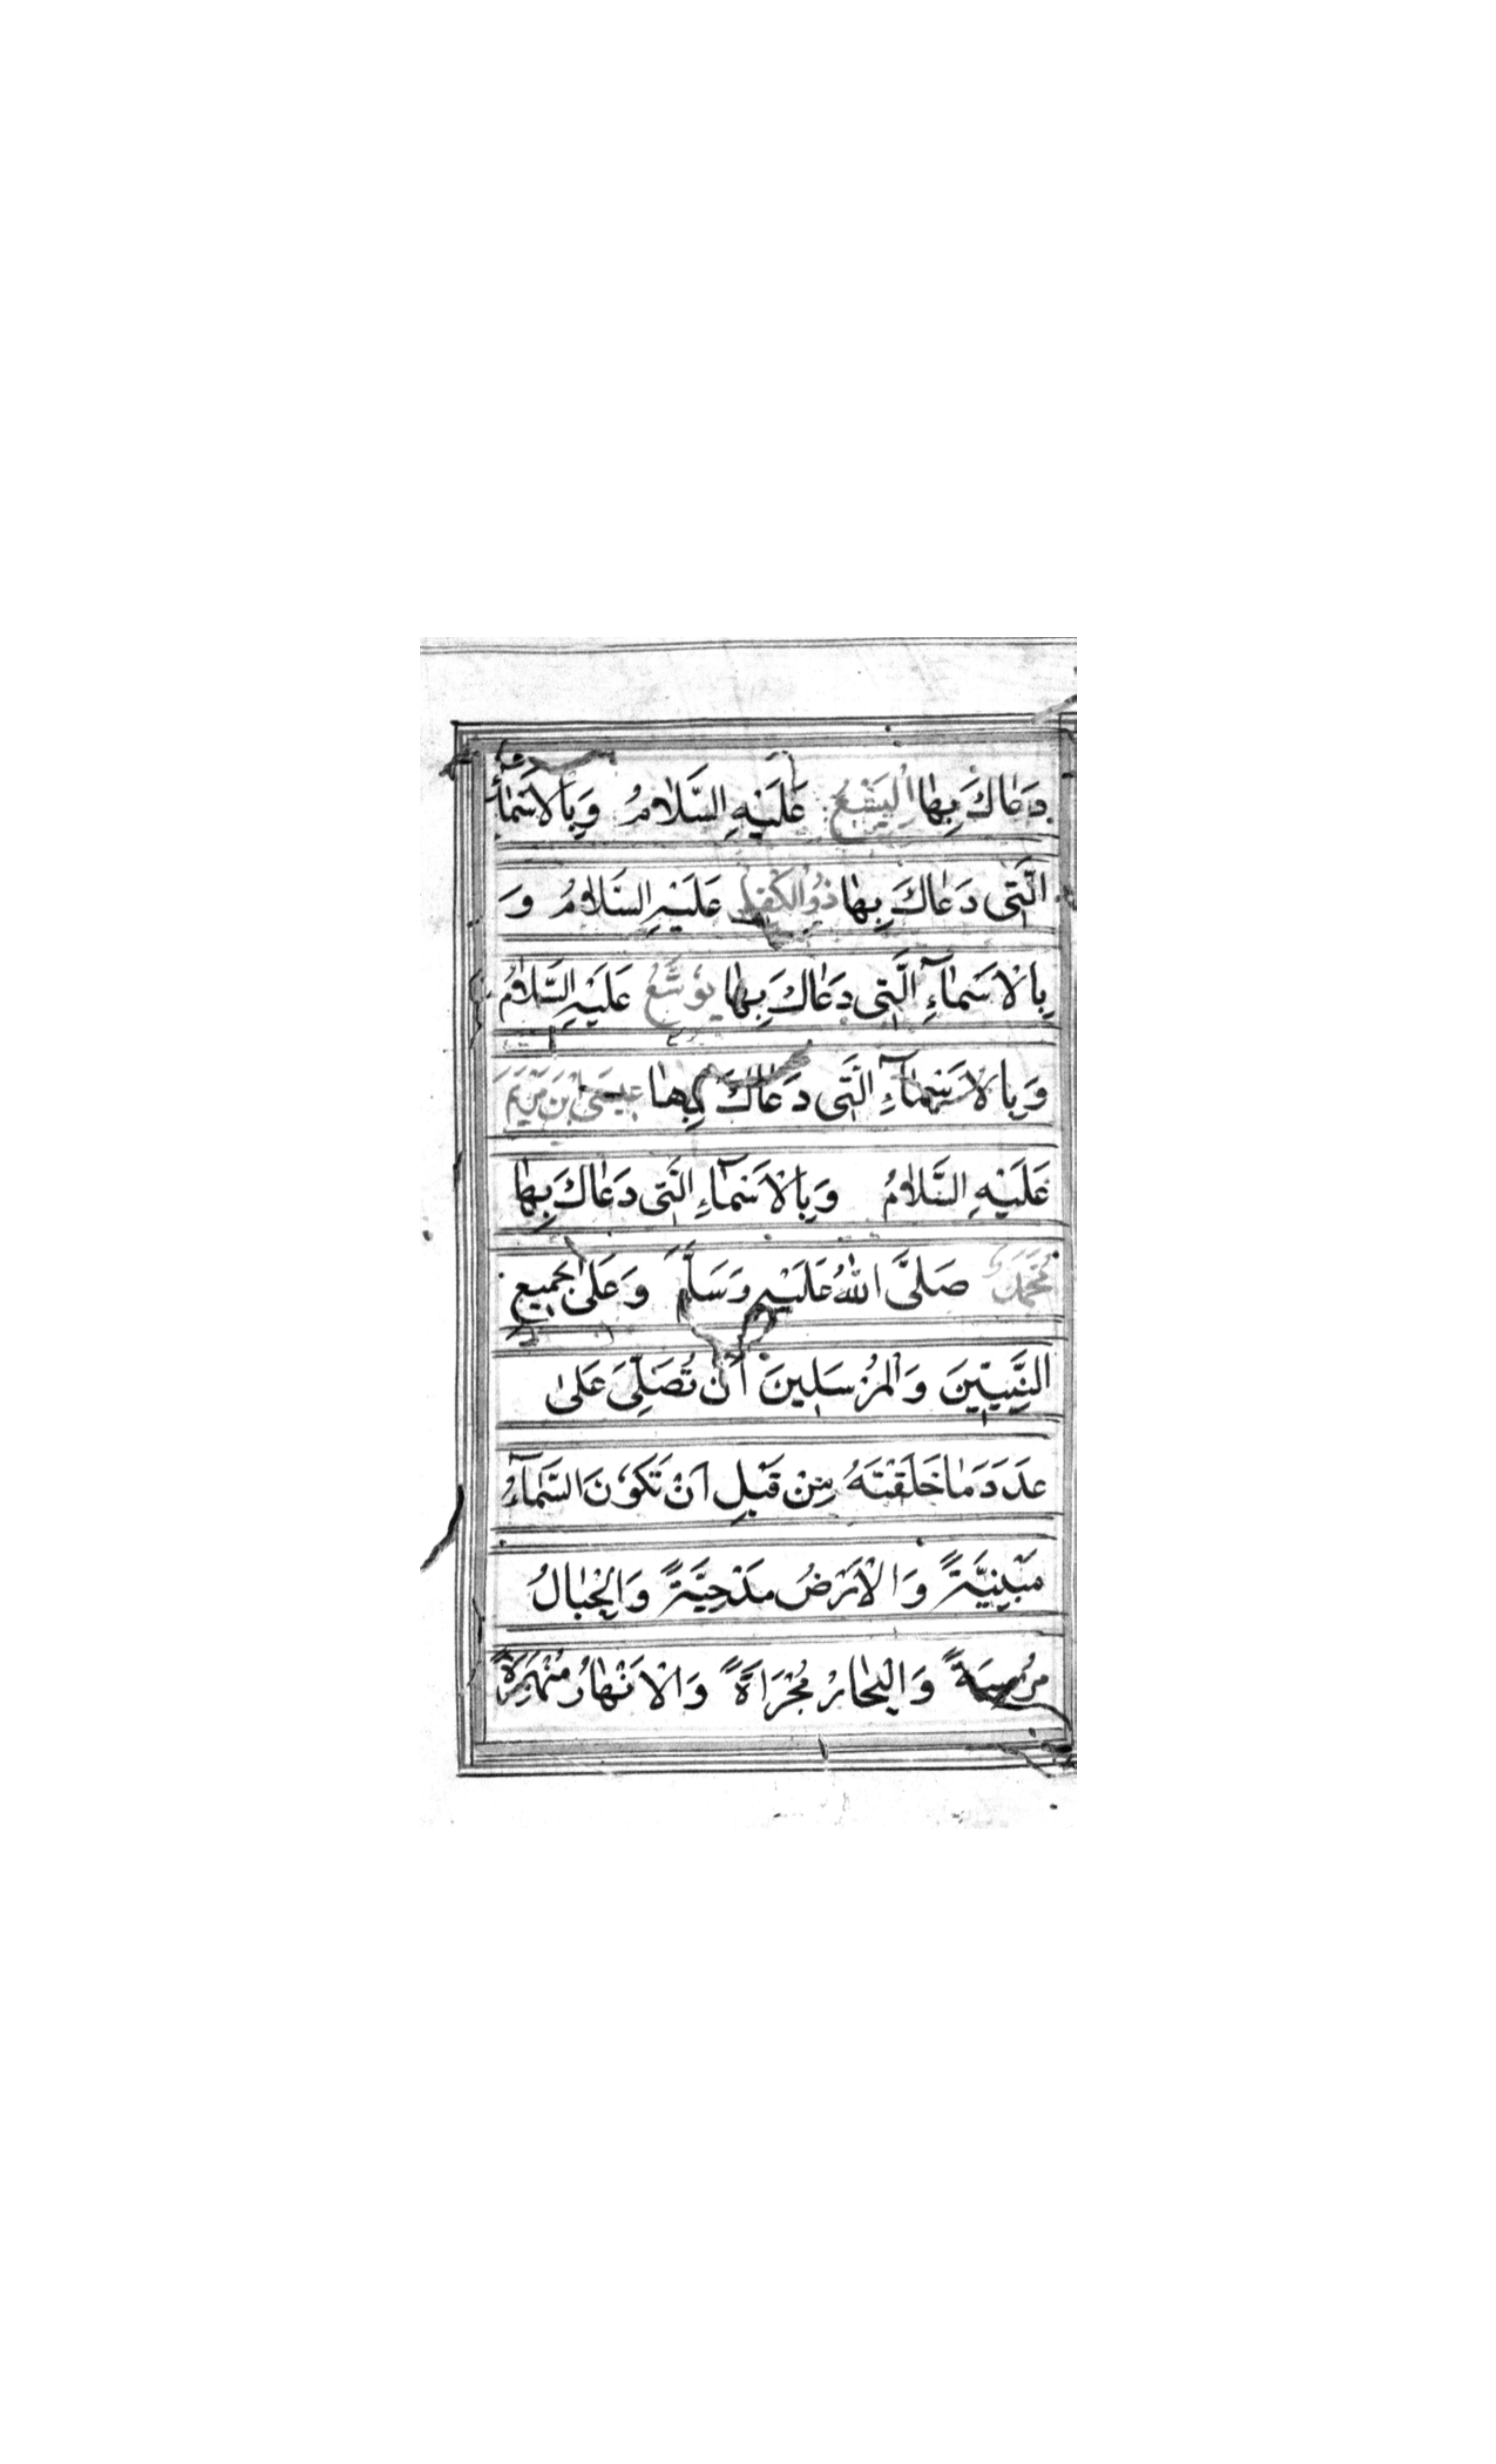 دَعَاكَ بِهَا اِلْيَسَعُ عَلَيْهِ السَّلَامُ وَبِالْاَسْمَاءِ
الَّتِى دَعَاكَ بِهَا ذُوالْكِفْلِ عَلَيْهِ السَّلَامُ وَ
بِالْاَسْمَآءِ الَّتِى دَعَاكَ بِهَا يُوشَعُ عَلَيْهِ السَّلَامُ
وَبِالْاَسْمَآءِ الَّتِى دَعَاكَ بِهَا عِيسَى ابْنُ مَرْيَمَ
عَلَيْهِ السَّلَامُ وَبِالْاَسْمَآءِ الَّتِى دَعَاكَ بِهَا
مُحَمَّدٌ صَلَّى اللّٰهُ عَلَيْهِ وَسَلَّمَ وَعَلٰى جَمِيعِ
النَّبِيِّينَ وَالْمُرْسَلِينَ اَنْ تُصَلِّىَ عَلٰى
عَدَدَ مَا خَلَقْتَهُ مِنْ قَبْلِ اَنْ تَكُونَ السَّمَآءُ
مَبْنِيَّةً وَالْاَرْضُ مَدْحِيَّةً وَالْجِبَالُ
مُرْسِيَةً وَالْبِحَارُ مُجْرَاةً وَالْاَنْهَارُ مُنْهَمِرَةً